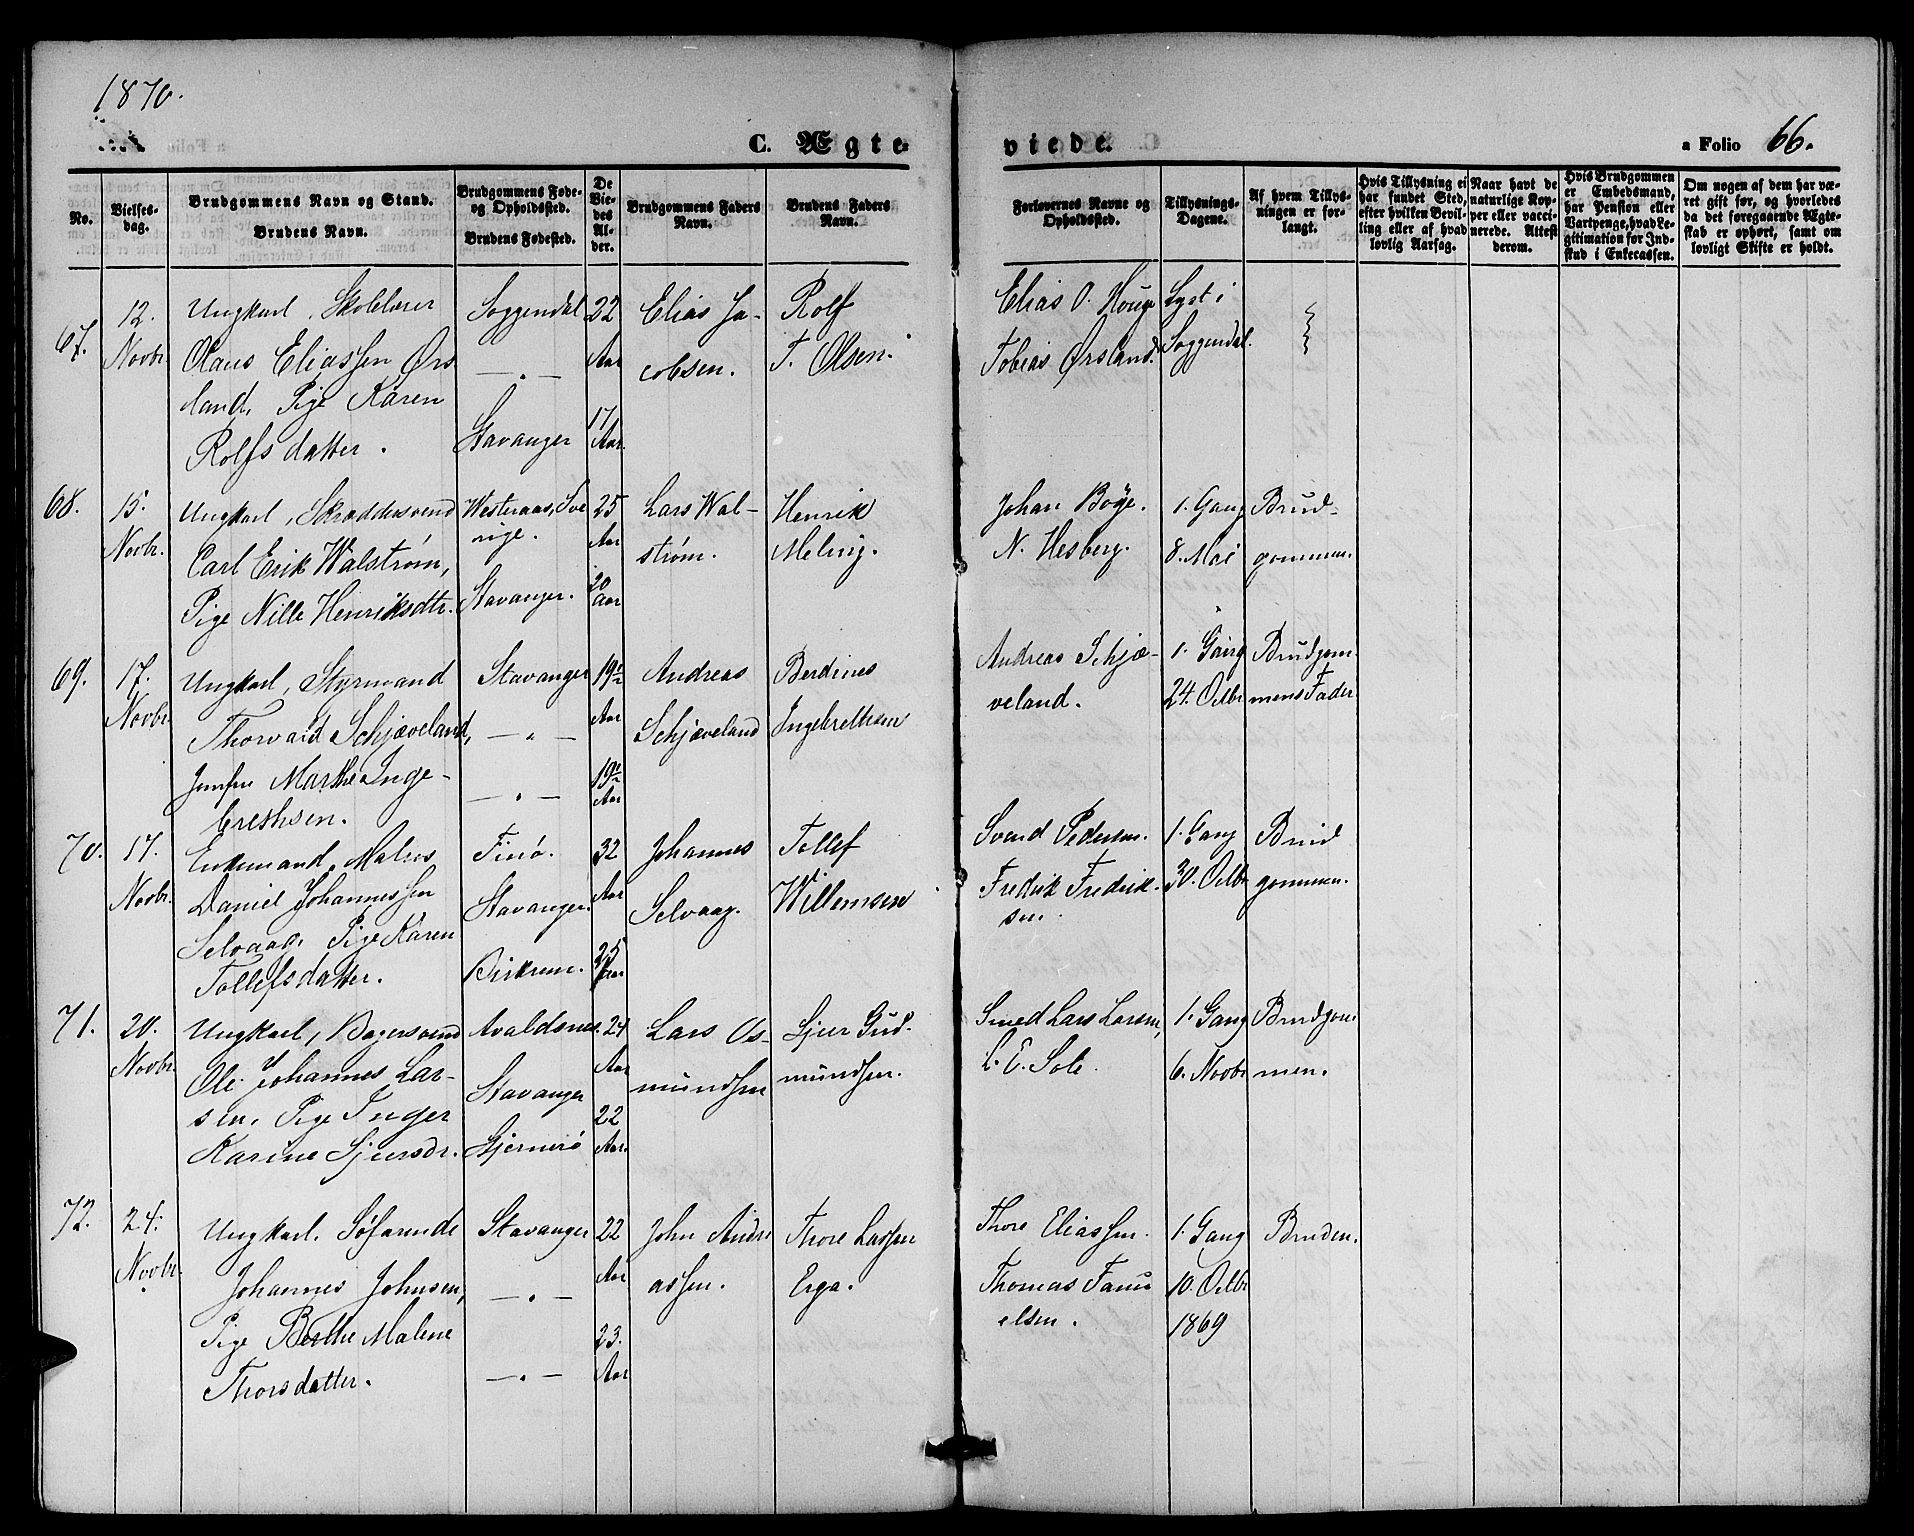 1870.
C. Ægte-
viede.
a Folio 66.
No.
Vielses-
dag.
Brudgommens Navn og Stand.
Brudens Navn.
Brudgommens Føde-
og Opholdssted.
Brudens Fødested.
De
Vie-
des
Al-
der.
Brudgommens Faders
Navn.
Brudens Faders
Navn.
Forlovernes Navne og
Opholdssted.
Tillysnings-
Dagene.
Af hvem Tillys-
ningen er for-
langt.
Hvis Tillysning ei
har fundet Sted,
efter hvilken Bevil-
ling eller af hvad
lovlig Aarsag.
Naar havt de
naturlige Kop-
per eller vacci-
nerede. Attest
derom.
Hvis Brudgommen
er Embedsmand,
har Pension eller
Vartpenge, hvad Le-
gitimation for Ind-
skud i Enkecassen.
Om nogen af dem har væ-
ret gift før, og hvorledes
da det foregaaende Ægte-
skab er ophørt, samt om
lovligt Skifte er holdt.
67.
12.
Novbr.
Ungkarl, Skolelærer
Olaus Eliassen Ørs
land, Pige Karen
Rolfsdatter.
Soggendal
— " —
Stavanger
22
Aar
17
Aar.
Elias Ja-
cobsen.
Rolf
T. Olsen.
Elias O. Houge
Tobias Ørsland.
Lyst i
Soggendal.
68.
15.
Novbr.
Ungkarl, Skræddersvend
Carl Erik Walstrøm,
Pige Nille Henriksdtr.
Westeraas, Sve
rige.
Stavanger.
25
Aar
20
Aar
Lars Wal-
strøm.
Henrik
Meling.
Johan Bøye.
N. Hesberg.
1. Gang
8. Mai
Brud-
gommen.
69.
17.
Novbr.
Ungkarl, Styrmand
Thorvald Schjæveland,
Jomfru Marthe Inge-
brethsen.
Stavanger
— " —
— " —
19½
Aar
19½
Aar
Andreas
Schjæveland
Berdines
Ingebrethsen
Andreas Schjæ-
veland.
1. Gang
24. Octbr
Brudgom-
mens Fader
70.
17.
Novbr.
Enkemand, Matros
Daniel Johannessen
Selvaag, Pige Karen
Tollefsdatter.
Finø.
Stavanger.
Birkrem.
32
Aar
25
Aar
Johannes
Selvaag.
Tollef
Willemsen
Svend Pedersen.
Fredrik Fredrik-
sen.
1. Gang
30. Octbr
Brud
gommen.
71.
20.
Novbr.
Ungkarl, Bagersvend
Ole Johannes Lar-
sen, Pige Inger
Karine Sjursdr.
Avaldsnes.
Stavanger
Sjernerø
24
Aar
22
Aar.
Lars Os-
mundsen
Sjur Gud-
mundsen.
Smed Lars Larsen,
L. E. Sote.
1. Gang
6. Novbr
Brudgom
men.
72.
24.
Novbr.
Ungkarl, Søfarende
Johannes Johnsen,
Pige Berthe Malene
Thorsdatter.
Stavanger
— " —
— " —
22
Aar
23.
Aar
John Andre
assen.
Thore Lassen
Erga.
Thore Eliassen.
Thomas Samu
elsen.
1. Gang
10. Octbr
1869
Bruden.